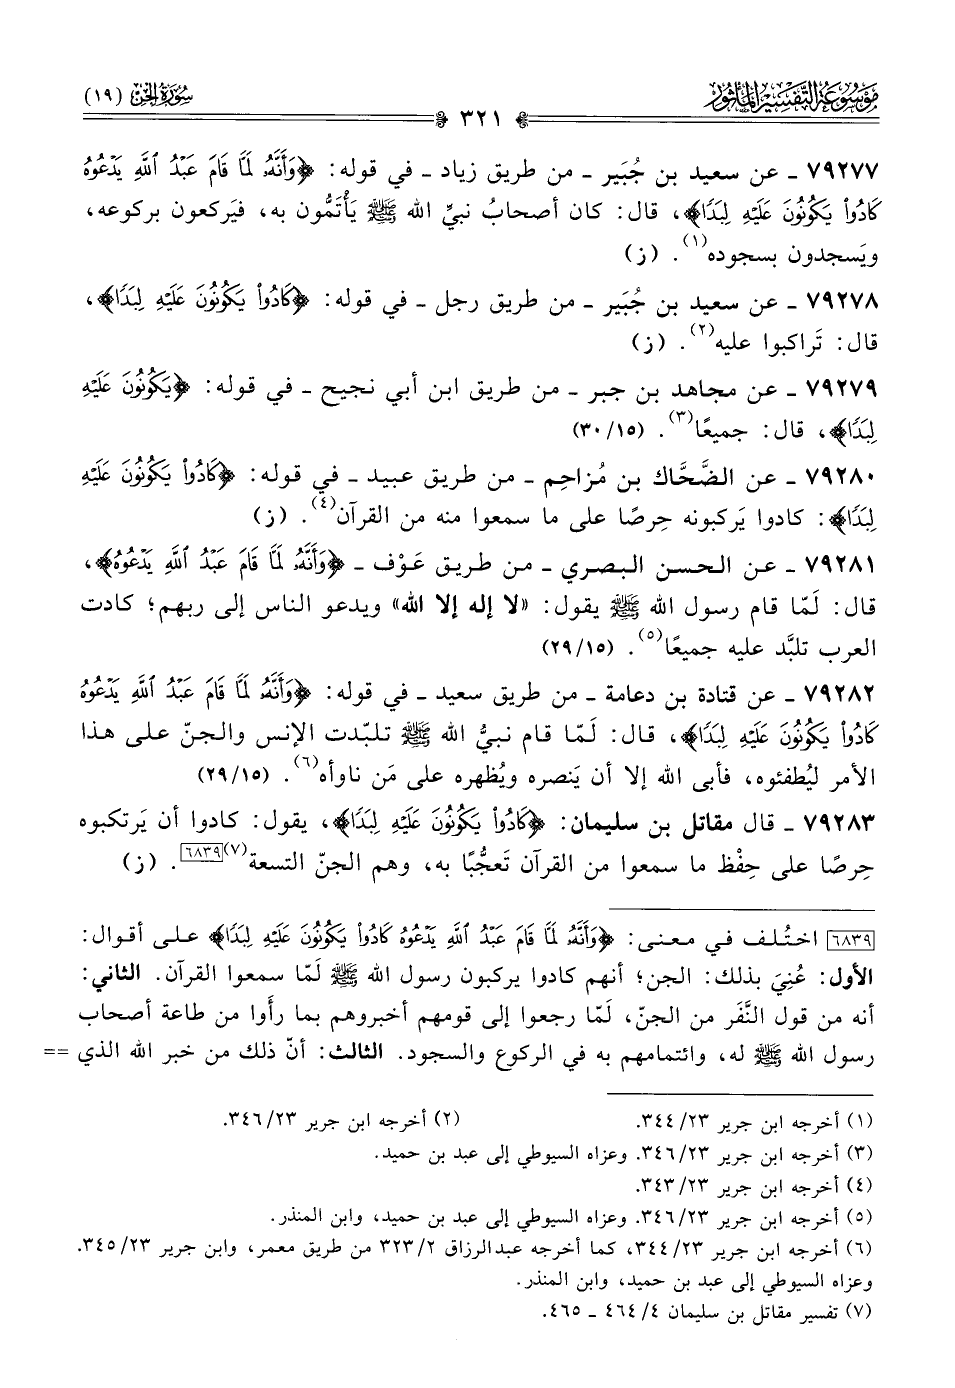 موسوعة التفسير المأثور
سورة الجن (١٩)
٣٢١
٧٩٢٧٧ ـ عن سعيد بن جُبَير ـ من طريق زياد ـ في قوله: ﴿وَأَنَّهُۥ لَمَّا قَامَ عَبْدُ ٱللَّهِ يَدْعُوهُ
كَادُوا۟ يَكُونُونَ عَلَيْهِ لِبَدًا﴾، قال: كان أصحابُ نبيِّ الله ﷺ يَأْتَمُّون به، فيَركعون بركوعه،
ويَسجدون بسجوده(١). (ز)
٧٩٢٧٨ ـ عن سعيد بن جُبَير ـ من طريق رجل ـ في قوله: ﴿كَادُوا۟ يَكُونُونَ عَلَيْهِ لِبَدًا﴾،
قال: تَراكبوا عليه(٢). (ز)
٧٩٢٧٩ ـ عن مجاهد بن جبر ـ من طريق ابن أبي نجيح ـ في قوله: ﴿يَكُونُونَ عَلَيْهِ
لِبَدًا﴾، قال: جميعًا(٣). (٣٠/١٥)
٧٩٢٨٠ ـ عن الضَّحَّاك بن مُزاحِم ـ من طريق عبيد ـ في قوله: ﴿كَادُوا۟ يَكُونُونَ عَلَيْهِ
لِبَدًا﴾: كادوا يَركبونه حِرصًا على ما سمعوا منه من القرآن(٤). (ز)
٧٩٢٨١ ـ عن الحسن البصري ـ من طريق عَوْف ـ ﴿وَأَنَّهُۥ لَمَّا قَامَ عَبْدُ ٱللَّهِ يَدْعُوهُ﴾،
قال: لَمّا قام رسول الله ﷺ يقول: «لا إله إلا الله» ويدعو الناس إلى ربهم؛ كادت
العرب تلبَّد عليه جميعًا(٥). (٢٩/١٥)
٧٩٢٨٢ ـ عن قتادة بن دعامة ـ من طريق سعيد ـ في قوله: ﴿وَأَنَّهُۥ لَمَّا قَامَ عَبْدُ ٱللَّهِ يَدْعُوهُ
كَادُوا۟ يَكُونُونَ عَلَيْهِ لِبَدًا﴾، قال: لَمّا قام نبيُّ الله ﷺ تلبّدت الإنس والجنّ على هذا
الأمر ليُطفئوه، فأبى الله إلا أن يَنصره ويُظهره على مَن ناوأه(٦). (٢٩/١٥)
٧٩٢٨٣ ـ قال مقاتل بن سليمان: ﴿كَادُوا۟ يَكُونُونَ عَلَيْهِ لِبَدًا﴾، يقول: كادوا أن يَرتكبوه
حِرصًا على حِفْظ ما سمعوا من القرآن تَعجُّبًا به، وهم الجنّ التسعة(٧)[٦٨٣٩]. (ز)
[٦٨٣٩] اختُلف في معنى: ﴿وَأَنَّهُۥ لَمَّا قَامَ عَبْدُ ٱللَّهِ يَدْعُوهُ كَادُوا۟ يَكُونُونَ عَلَيْهِ لِبَدًا﴾ على أقوال:
الأول: عُنِيَ بذلك: الجن؛ أنهم كادوا يركبون رسول الله ﷺ لَمّا سمعوا القرآن. الثاني:
أنه من قول النَّفَر من الجنّ، لَمّا رجعوا إلى قومهم أخبروهم بما رأَوا من طاعة أصحاب
رسول الله ﷺ له، وائتمامهم به في الركوع والسجود. الثالث: أنّ ذلك من خبر الله الذي ==
(١) أخرجه ابن جرير ٢٣/ ٣٤٤.
(٢) أخرجه ابن جرير ٢٣/ ٣٤٦.
(٣) أخرجه ابن جرير ٢٣/ ٣٤٦. وعزاه السيوطي إلى عبد بن حميد.
(٤) أخرجه ابن جرير ٢٣/ ٣٤٣.
(٥) أخرجه ابن جرير ٢٣/ ٣٤٦. وعزاه السيوطي إلى عبد بن حميد، وابن المنذر.
(٦) أخرجه ابن جرير ٢٣/ ٣٤٤، كما أخرجه عبدالرزاق ٢/ ٣٢٣ من طريق معمر، وابن جرير ٢٣/ ٣٤٥.
وعزاه السيوطي إلى عبد بن حميد، وابن المنذر.
(٧) تفسير مقاتل بن سليمان ٤/ ٤٦٤ ـ ٤٦٥.